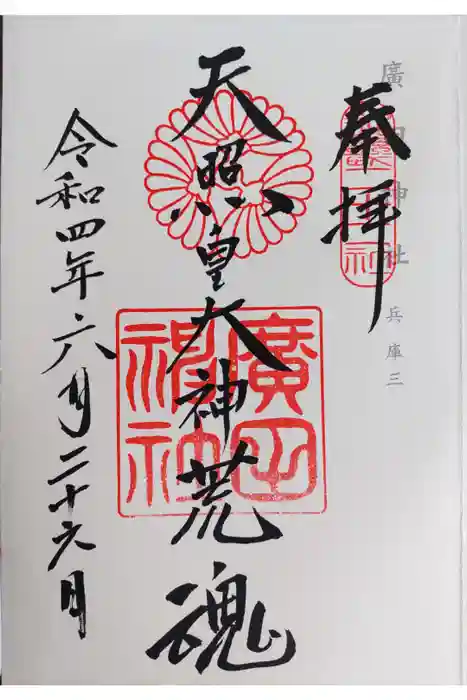 廣田神社 兵庫三
奉拝
天照皇大神荒魂
廣田神社
令和四年六月二十六日